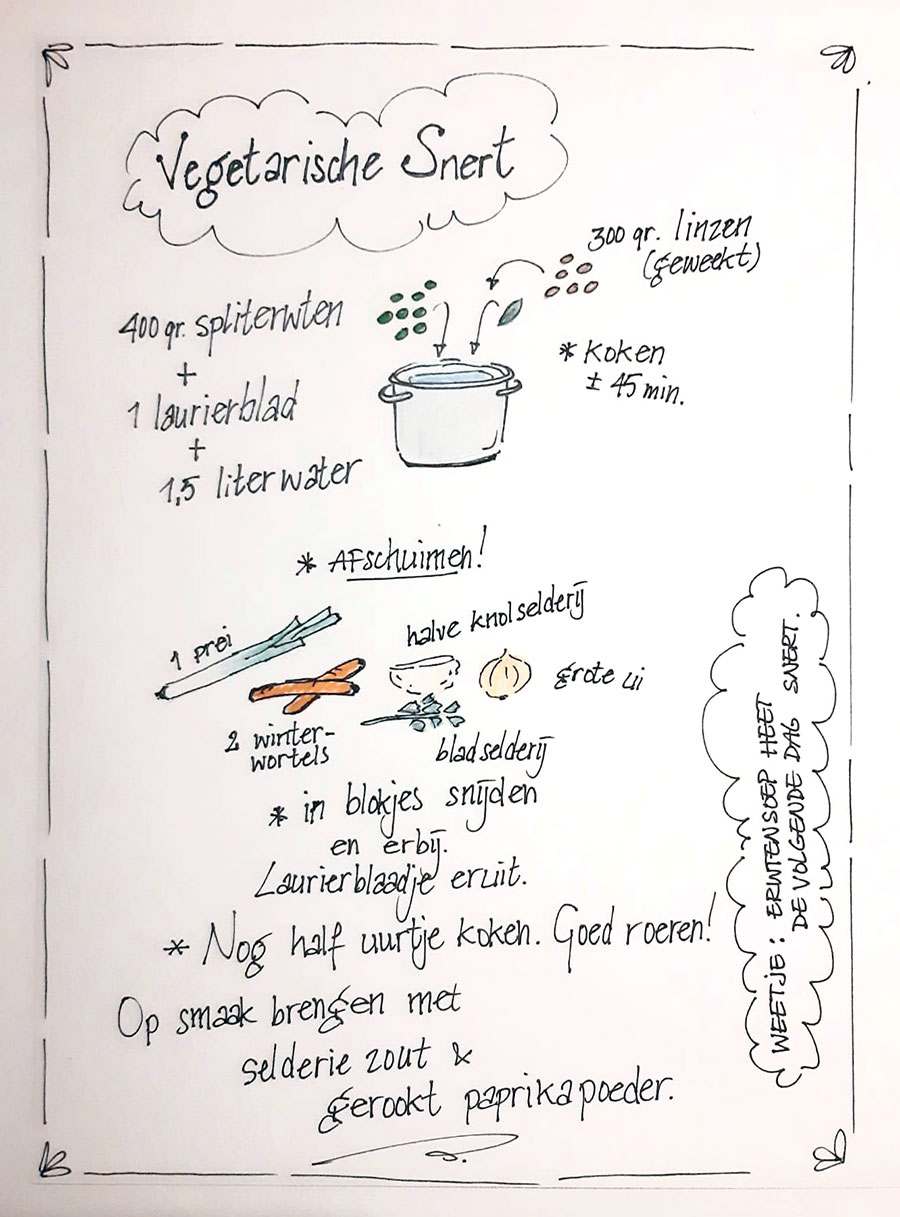 Vegetarische Snert
300 gr. linzen
(geweekt)
400 gr. spliterwten
+
1 laurierblad
+
1,5 liter water
* koken
± 45 min.
* Afschuimen!
1 prei
halve knolselderij
grote ui
2 winter-
wortels
bladselderij
* in blokjes snijden
en erbij.
Laurierblaadje eruit.
* Nog half uurtje koken. Goed roeren!
Op smaak brengen met
selderie zout &
gerookt paprikapoeder.
WEETJE: ERWTENSOEP HEET
DE VOLGENDE DAG SNERT.